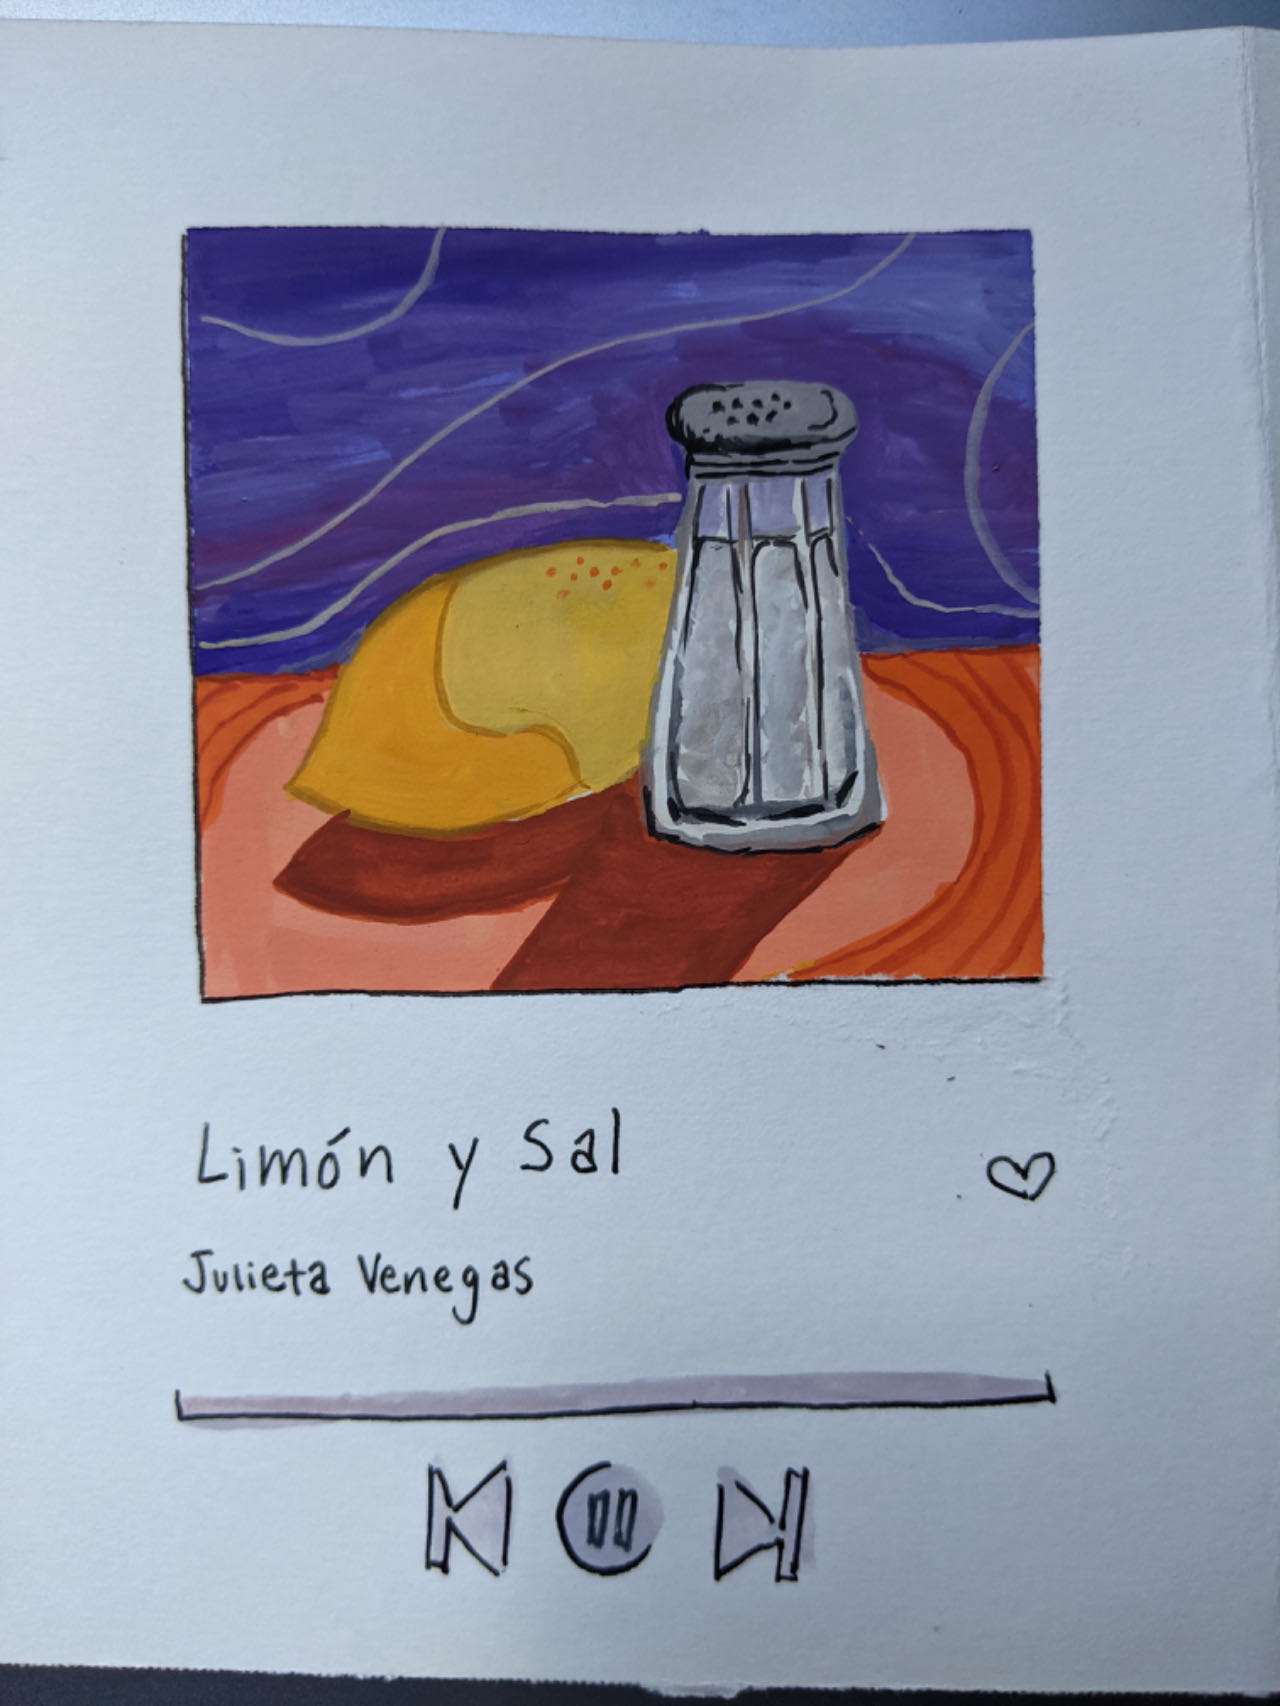 Limón y Sal
Julieta Venegas